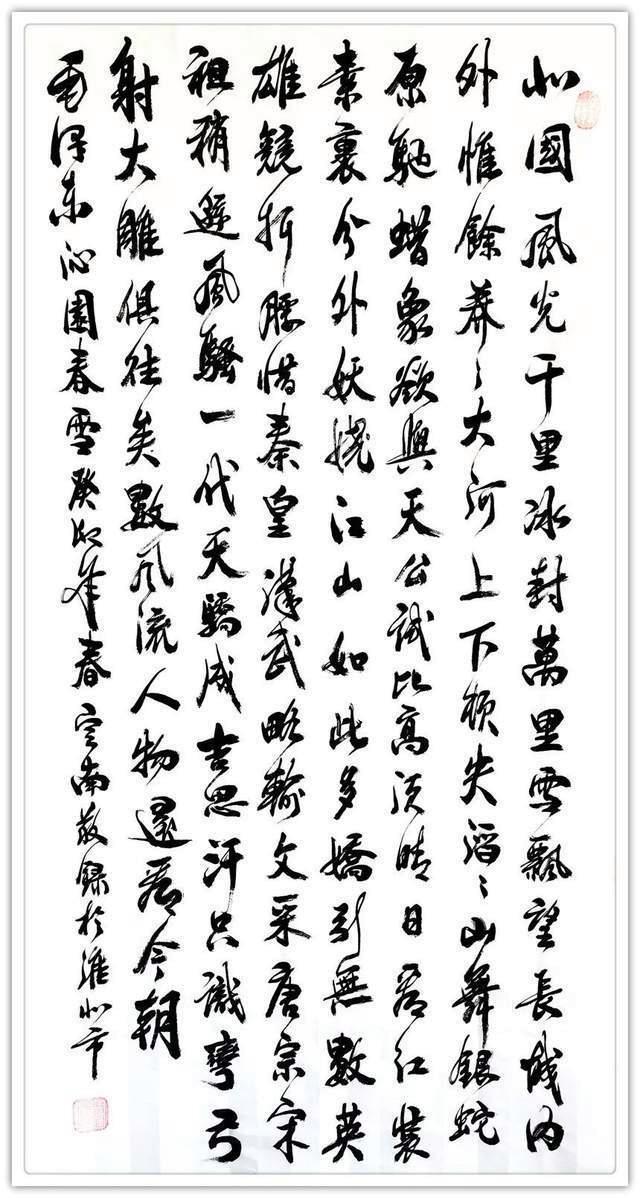 北國風光千里冰封萬里雪飄望長城內
外惟餘莽〻大河上下頓失滔〻山舞銀蛇
原馳蜡象欲與天公試比高須晴日看紅裝
素裹分外妖嬈江山如此多嬌引無數英
雄競折腰惜秦皇漢武略輸文采唐宗宋
祖稍遜風騷一代天驕成吉思汗只識彎弓
射大雕俱往矣數風流人物還看今朝
毛澤東沁園春雪癸卯年春南敬錄於淮北市